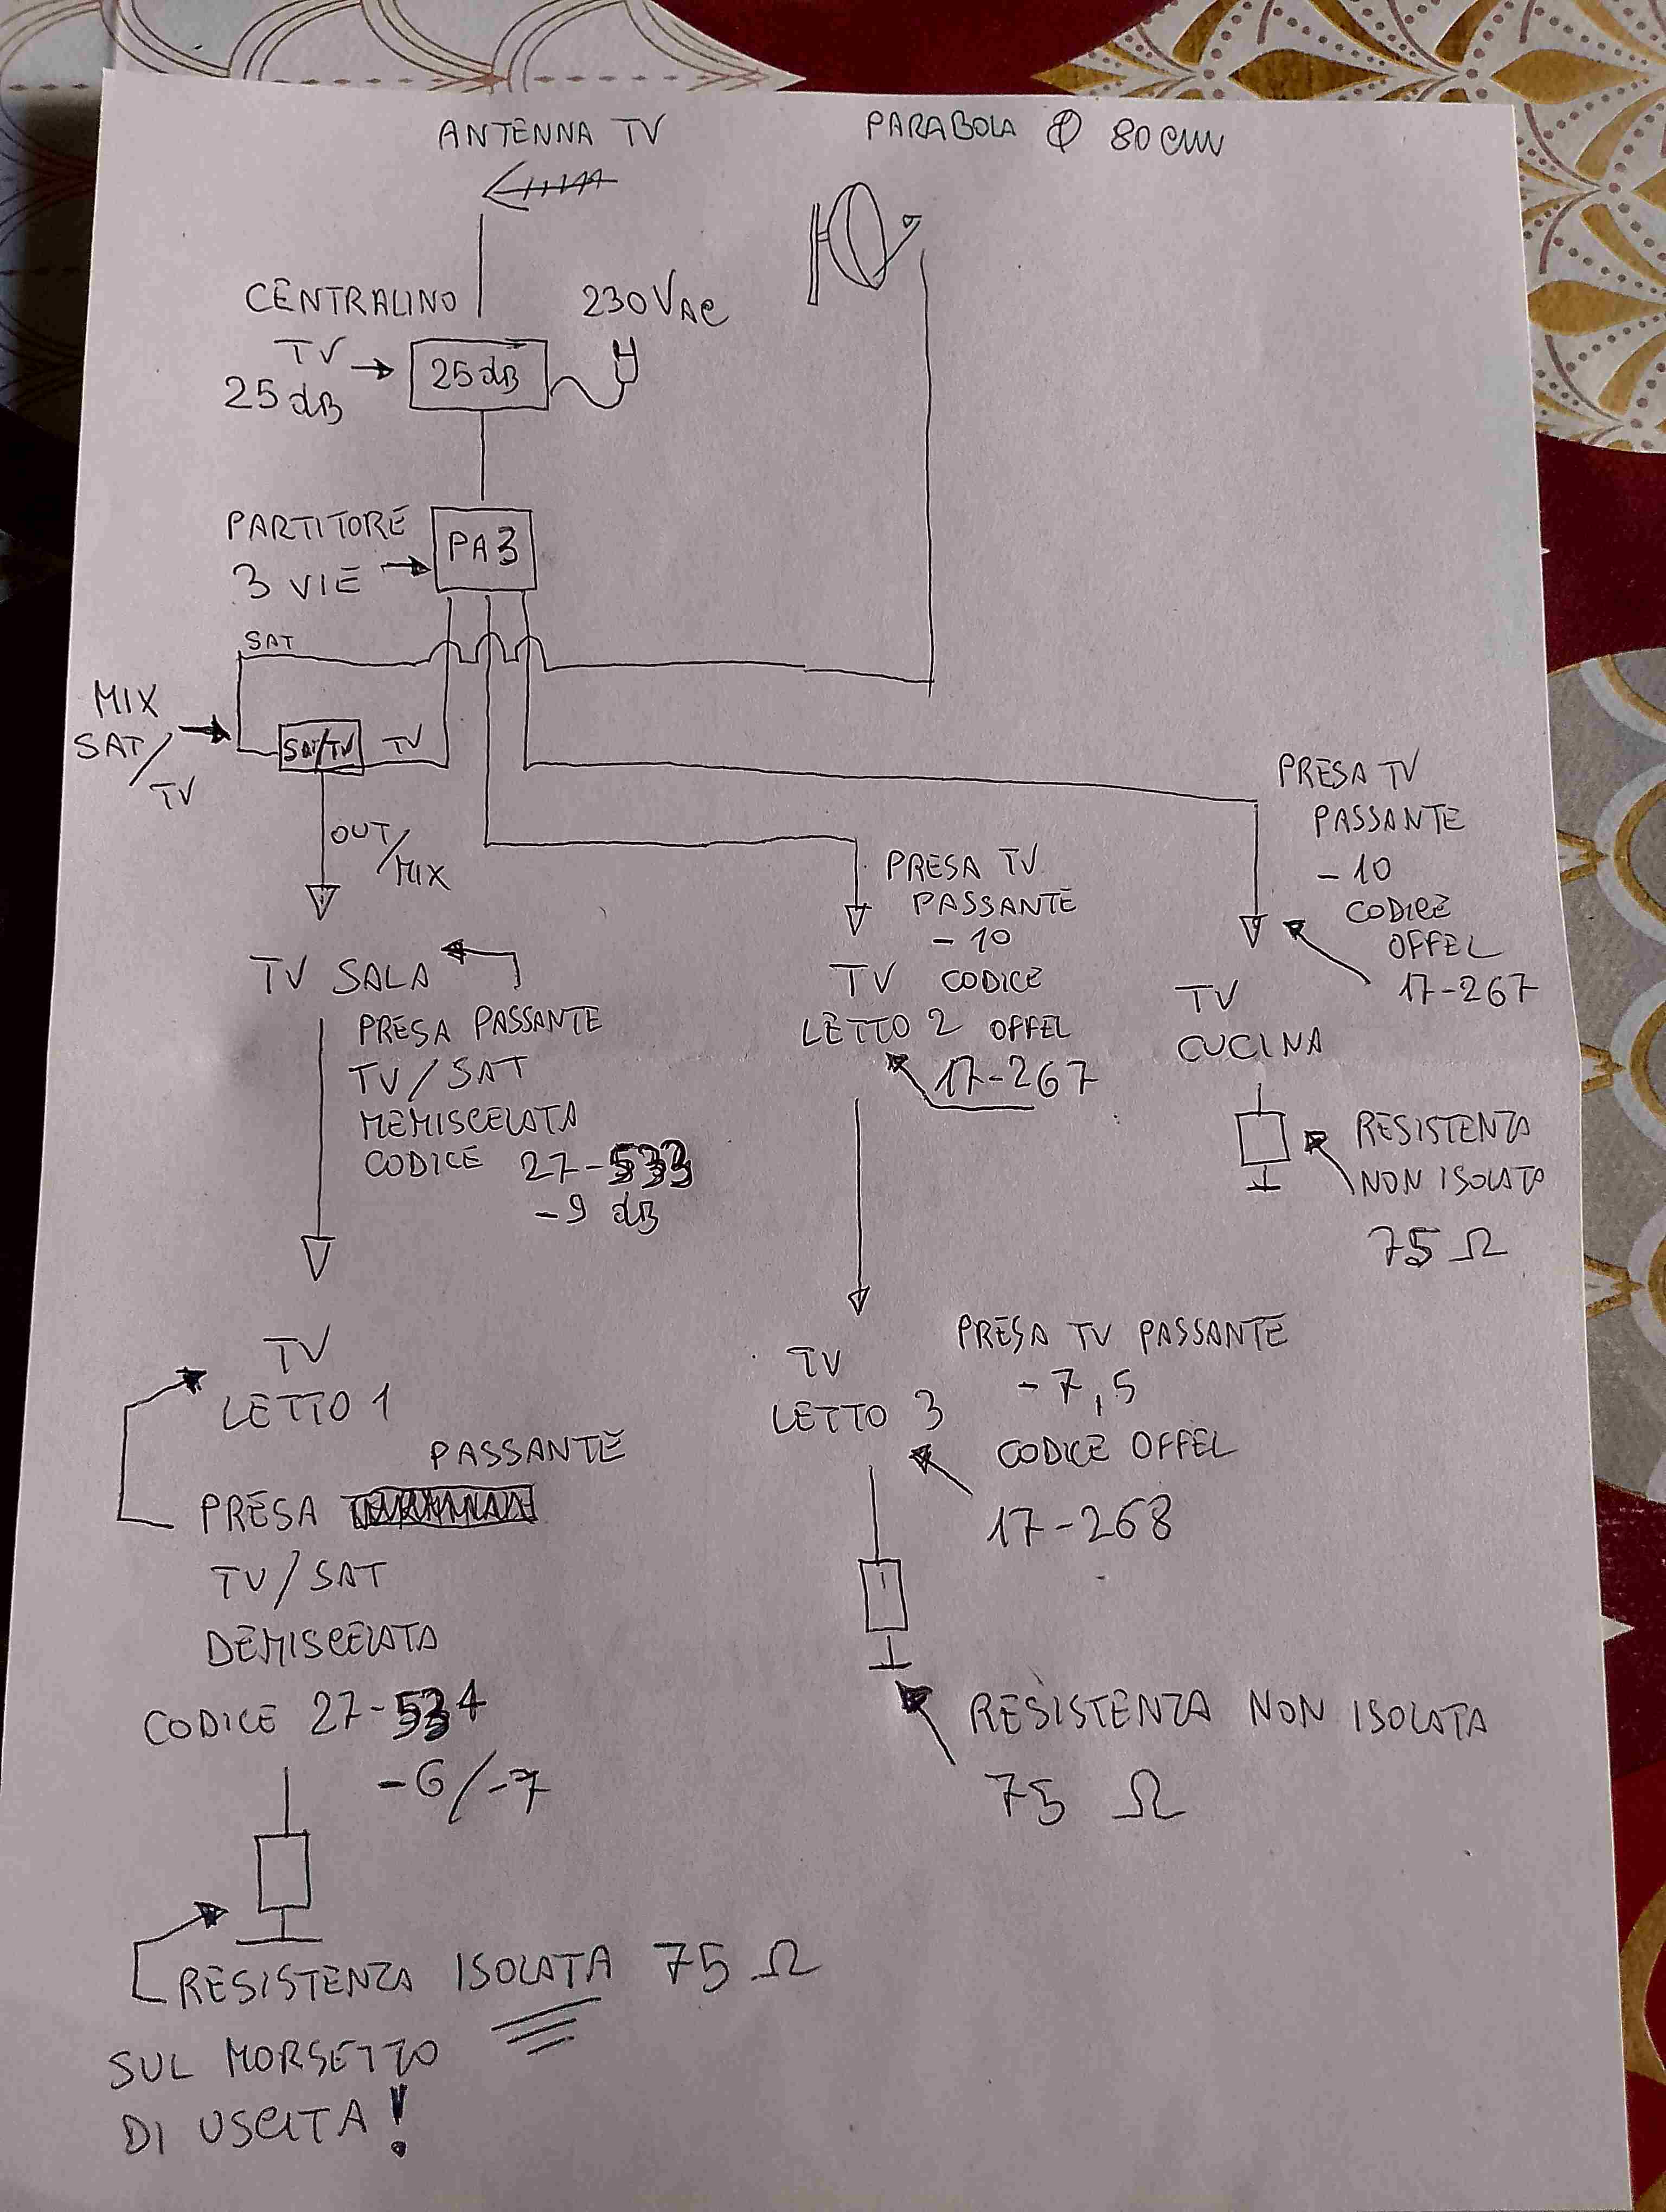 ANTENNA TV
PARABOLA Φ 80 cm
CENTRALINO
TV
25 dB
25 dB
230 VAC
PARTITORE
3 VIE
PA3
SAT
MIX
SAT/
TV
SAT/TV
TV
OUT/
MIX
PRESA TV
PASSANTE
- 10
CODICE
OFFEL
17-267
TV
CUCINA
RESISTENZA
NON ISOLATO
75 Ω
PRESA TV
PASSANTE
- 10
TV CODICE
LETTO 2 OFFEL
17-267
TV SALA
PRESA PASSANTE
TV/SAT
MEMISCELATA
CODICE 27-533
- 9 dB
TV
LETTO 1
PASSANTE
PRESA
TV/SAT
DEMISCELATA
CODICE 27-534
-6/-7
RESISTENZA ISOLATA 75 Ω
SUL MORSETTO
DI USCITA!
PRESA TV PASSANTE
- 7,5
TV
LETTO 3
CODICE OFFEL
17-268
RESISTENZA NON ISOLATA
75 Ω